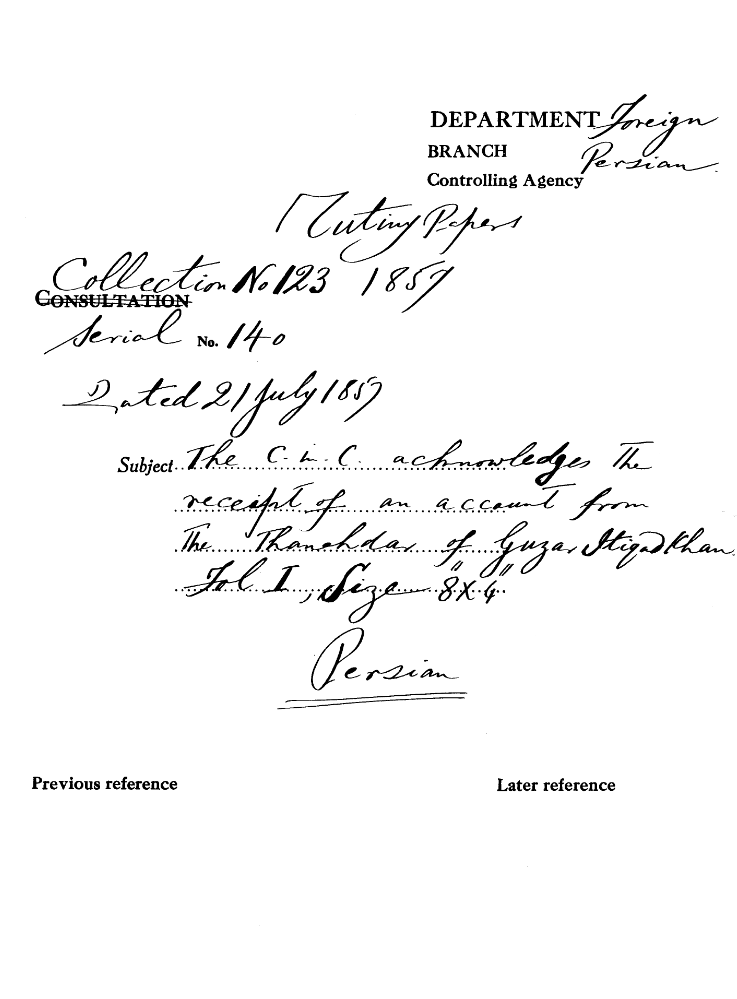 DEPARTMENT Foreign
BRANCH Persian
Controlling Agency
Mutiny Papers
Collection No 123 1857
CONSULTATION
Serial No. 140
Dated 21 July 1857
Subject The C. in. C. acknowledges The
receipt of an account from
The Thanehdar of Guzar Itiqad Khan
Fol I, Size 8" X 4"
Persian
Previous reference Later reference